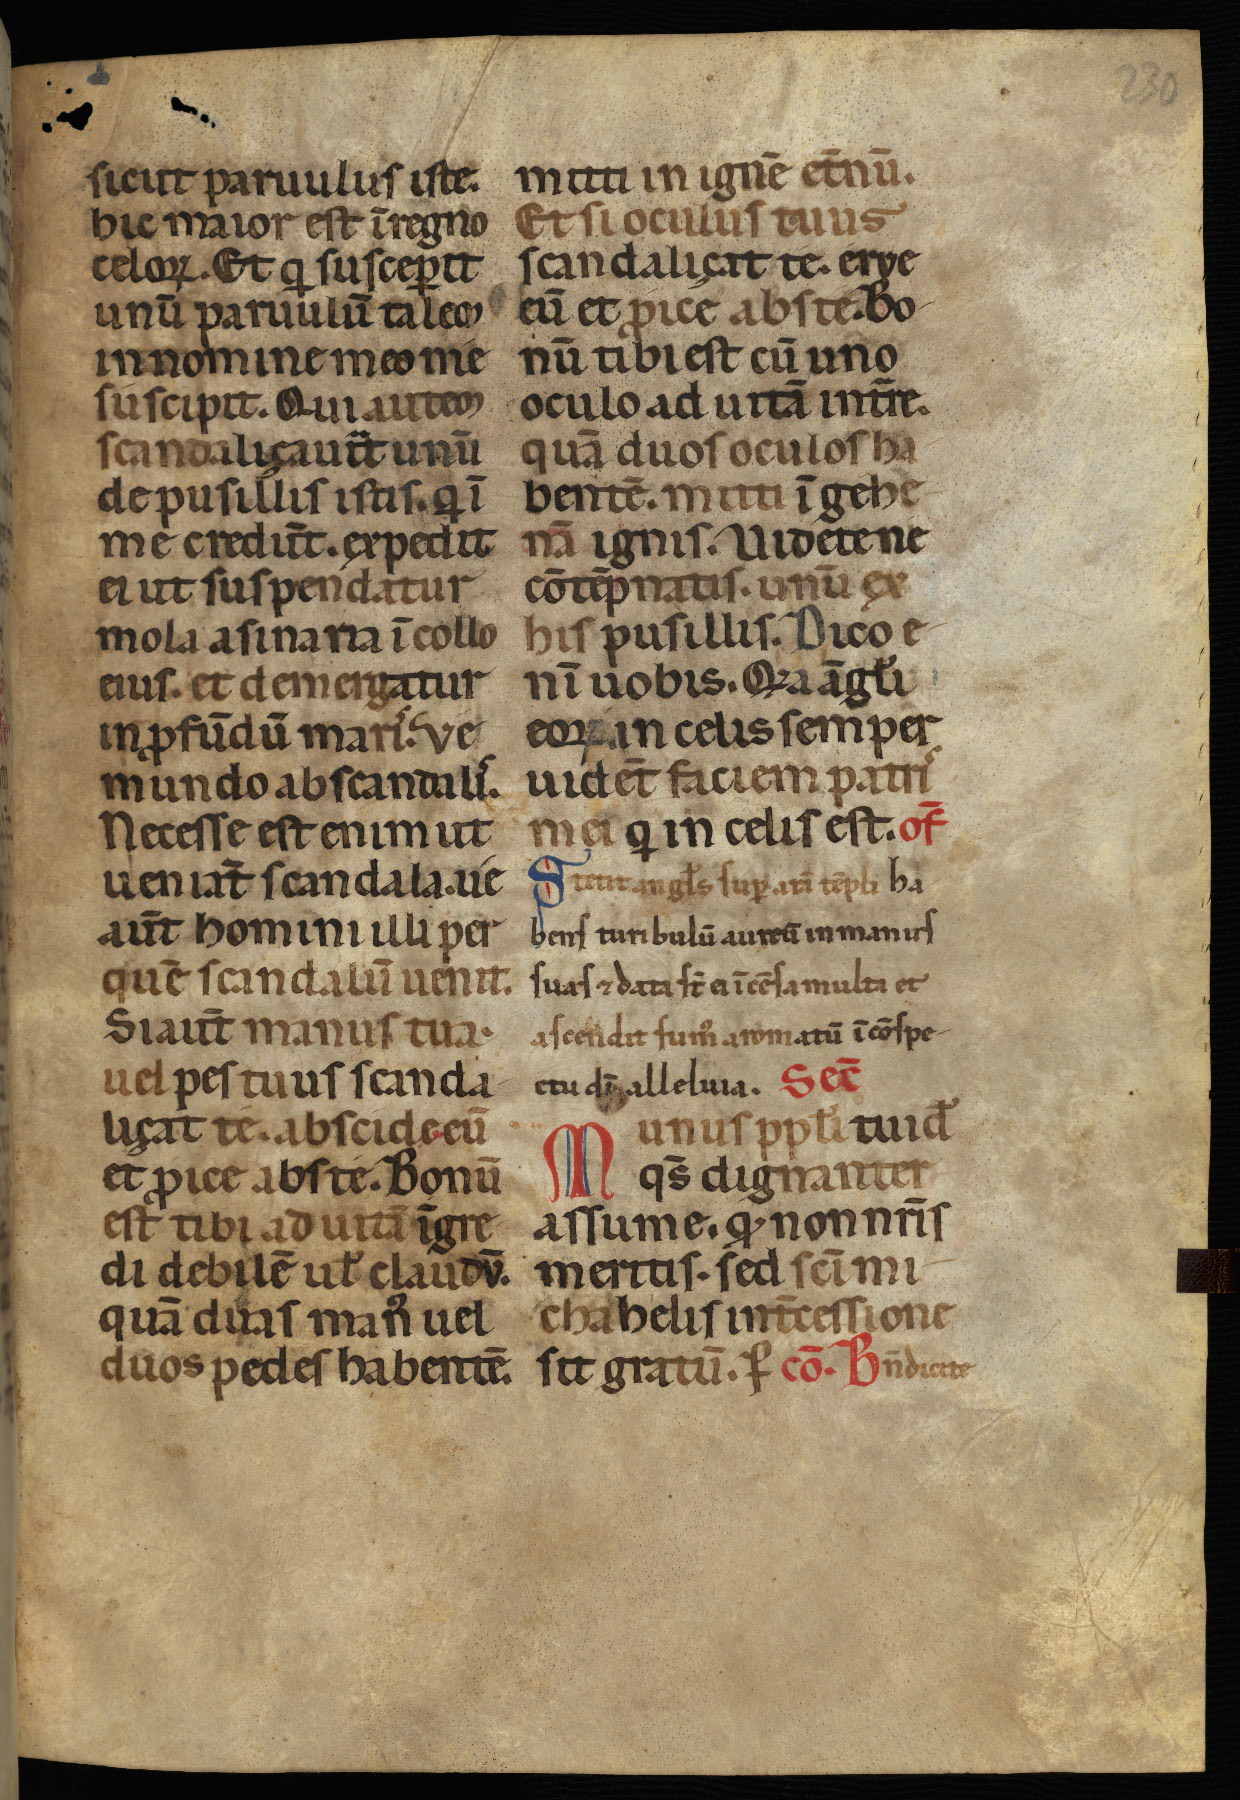 230
sicut paruulus iste.
hic maior est ī regno
celoꝝ. Et q̇ susceꝑit
unū paruulū talem
in nomine meo me
suscipit. Qui autem
scandaliçauit̄ unū
de pusillis istis. q̇ ī
me credūt. expedit
ei ut suspendatur
mola asinaria ī collo
eius. et demergatur
in ꝓfūdū maris. Ve
mundo ab scandalis.
Necesse est enim ut
ueniāt scandala. ue
aūt homini illi per
quē scandalū uenit.
Si aūt manus tua.
uel pes tuus scanda-
liçat te. abscide eū
et ꝓice abs te. Bonū
est tibi ad uitā īgre
di debilē ul̄ claudū.
quā duas man᷒ uel
duos pedes habentē.
mitti in ignē et̄nū.
Et si oculus tuus
scandaliçat te. erue
eū et ꝓice abs te. Bo-
nū tibi est cū uno
oculo ad uitā int̄re.
quā duos oculos ha
bentē. mitti ī gehe-
nā ignis. Uidete ne
cōtēpnatis. unū ex
his pusillis. Dico e-
nī uobis. Qꝛa āgl̄i
eoꝝ. in celis semper
uidēt faciem patris
mei q̇ in celis est. of̄
Stetit angl̄s suꝑ arā tēpli ha
bens turibulū aureū in manus
suas ⁊ data st̄ ei īcēsa multa et
ascendit fum᷒ aromatū ī cōspe-
ctu dī alleluia. Sec̄
Munus ppl̄i tui d̄
qs̄ dignanter
assume. qͥ non nr̄is
meritis. sed sc̄i mi-
chahelis int̄cessione
sit gratū. ꝑ cō. Bn̄dicite